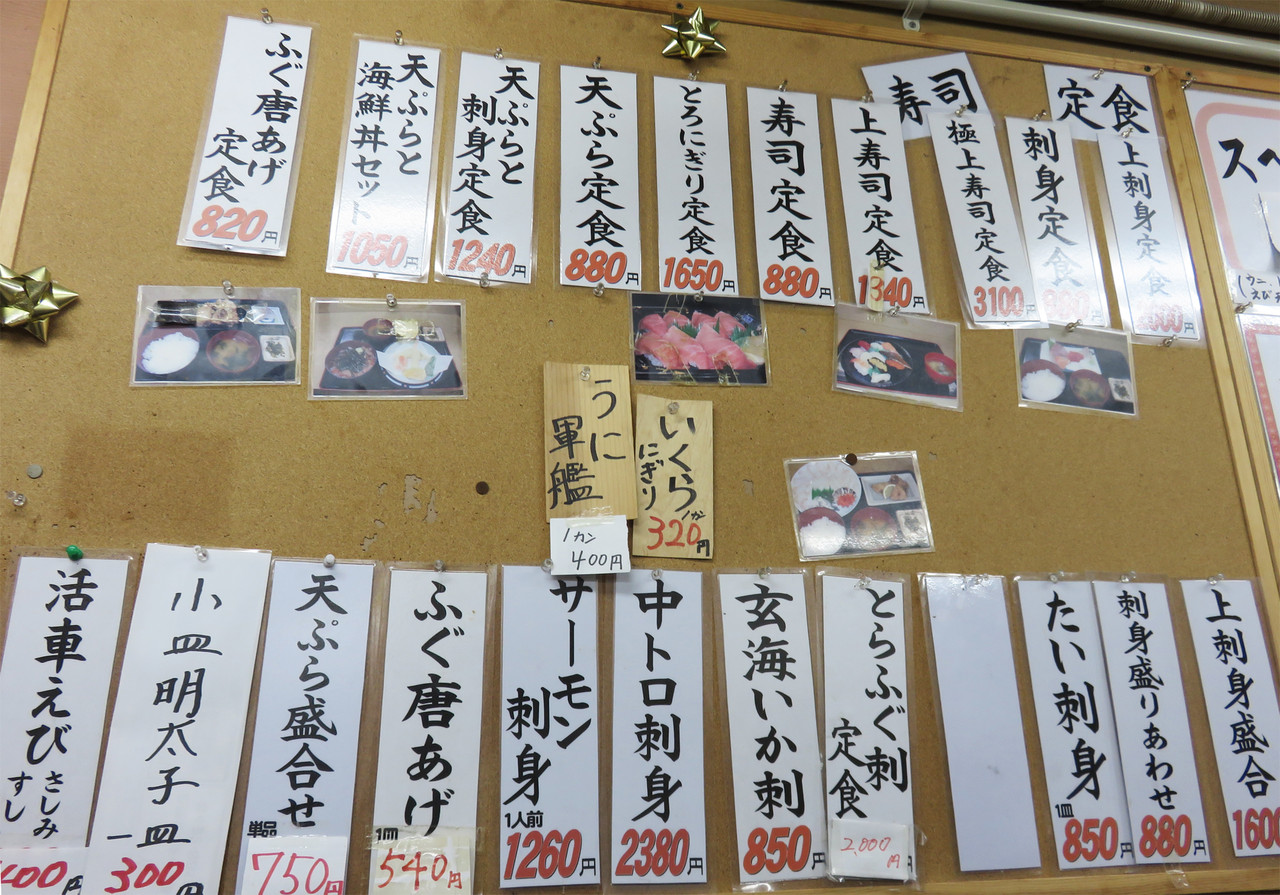 定食
寿司
上刺身定食
刺身定食
極上寿司定食
3100円
上寿司定食
1340円
寿司定食
880円
とろにぎり定食
1650円
天ぷら定食
880円
天ぷらと
刺身定食
1240円
天ぷらと
海鮮丼セッ
1050円
ふぐ唐あげ
定食
820円
スペ
うに
軍艦
1カン
400円
いくら
にぎり
1カ
320円
上刺身盛合
刺身盛りあわせ
880円
たい刺身
1皿
850円
とらふぐ刺
定食
2,000
円
玄海いか刺
850円
中トロ刺身
2380円
サーモン
刺身
1人前
1260円
ふぐ唐あげ
1皿
540円
天ぷら盛合せ
単品
750円
小皿明太子
一皿
300円
活車えび
さしみ
すし